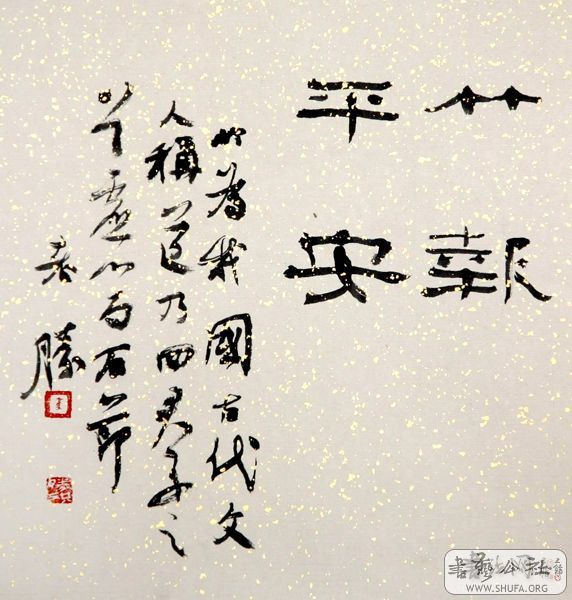 竹報
平安
竹為我國古代文
人稱道乃四君子之
以其虛心而有節
勝
書藝公社
WWW.SHUFA.ORG